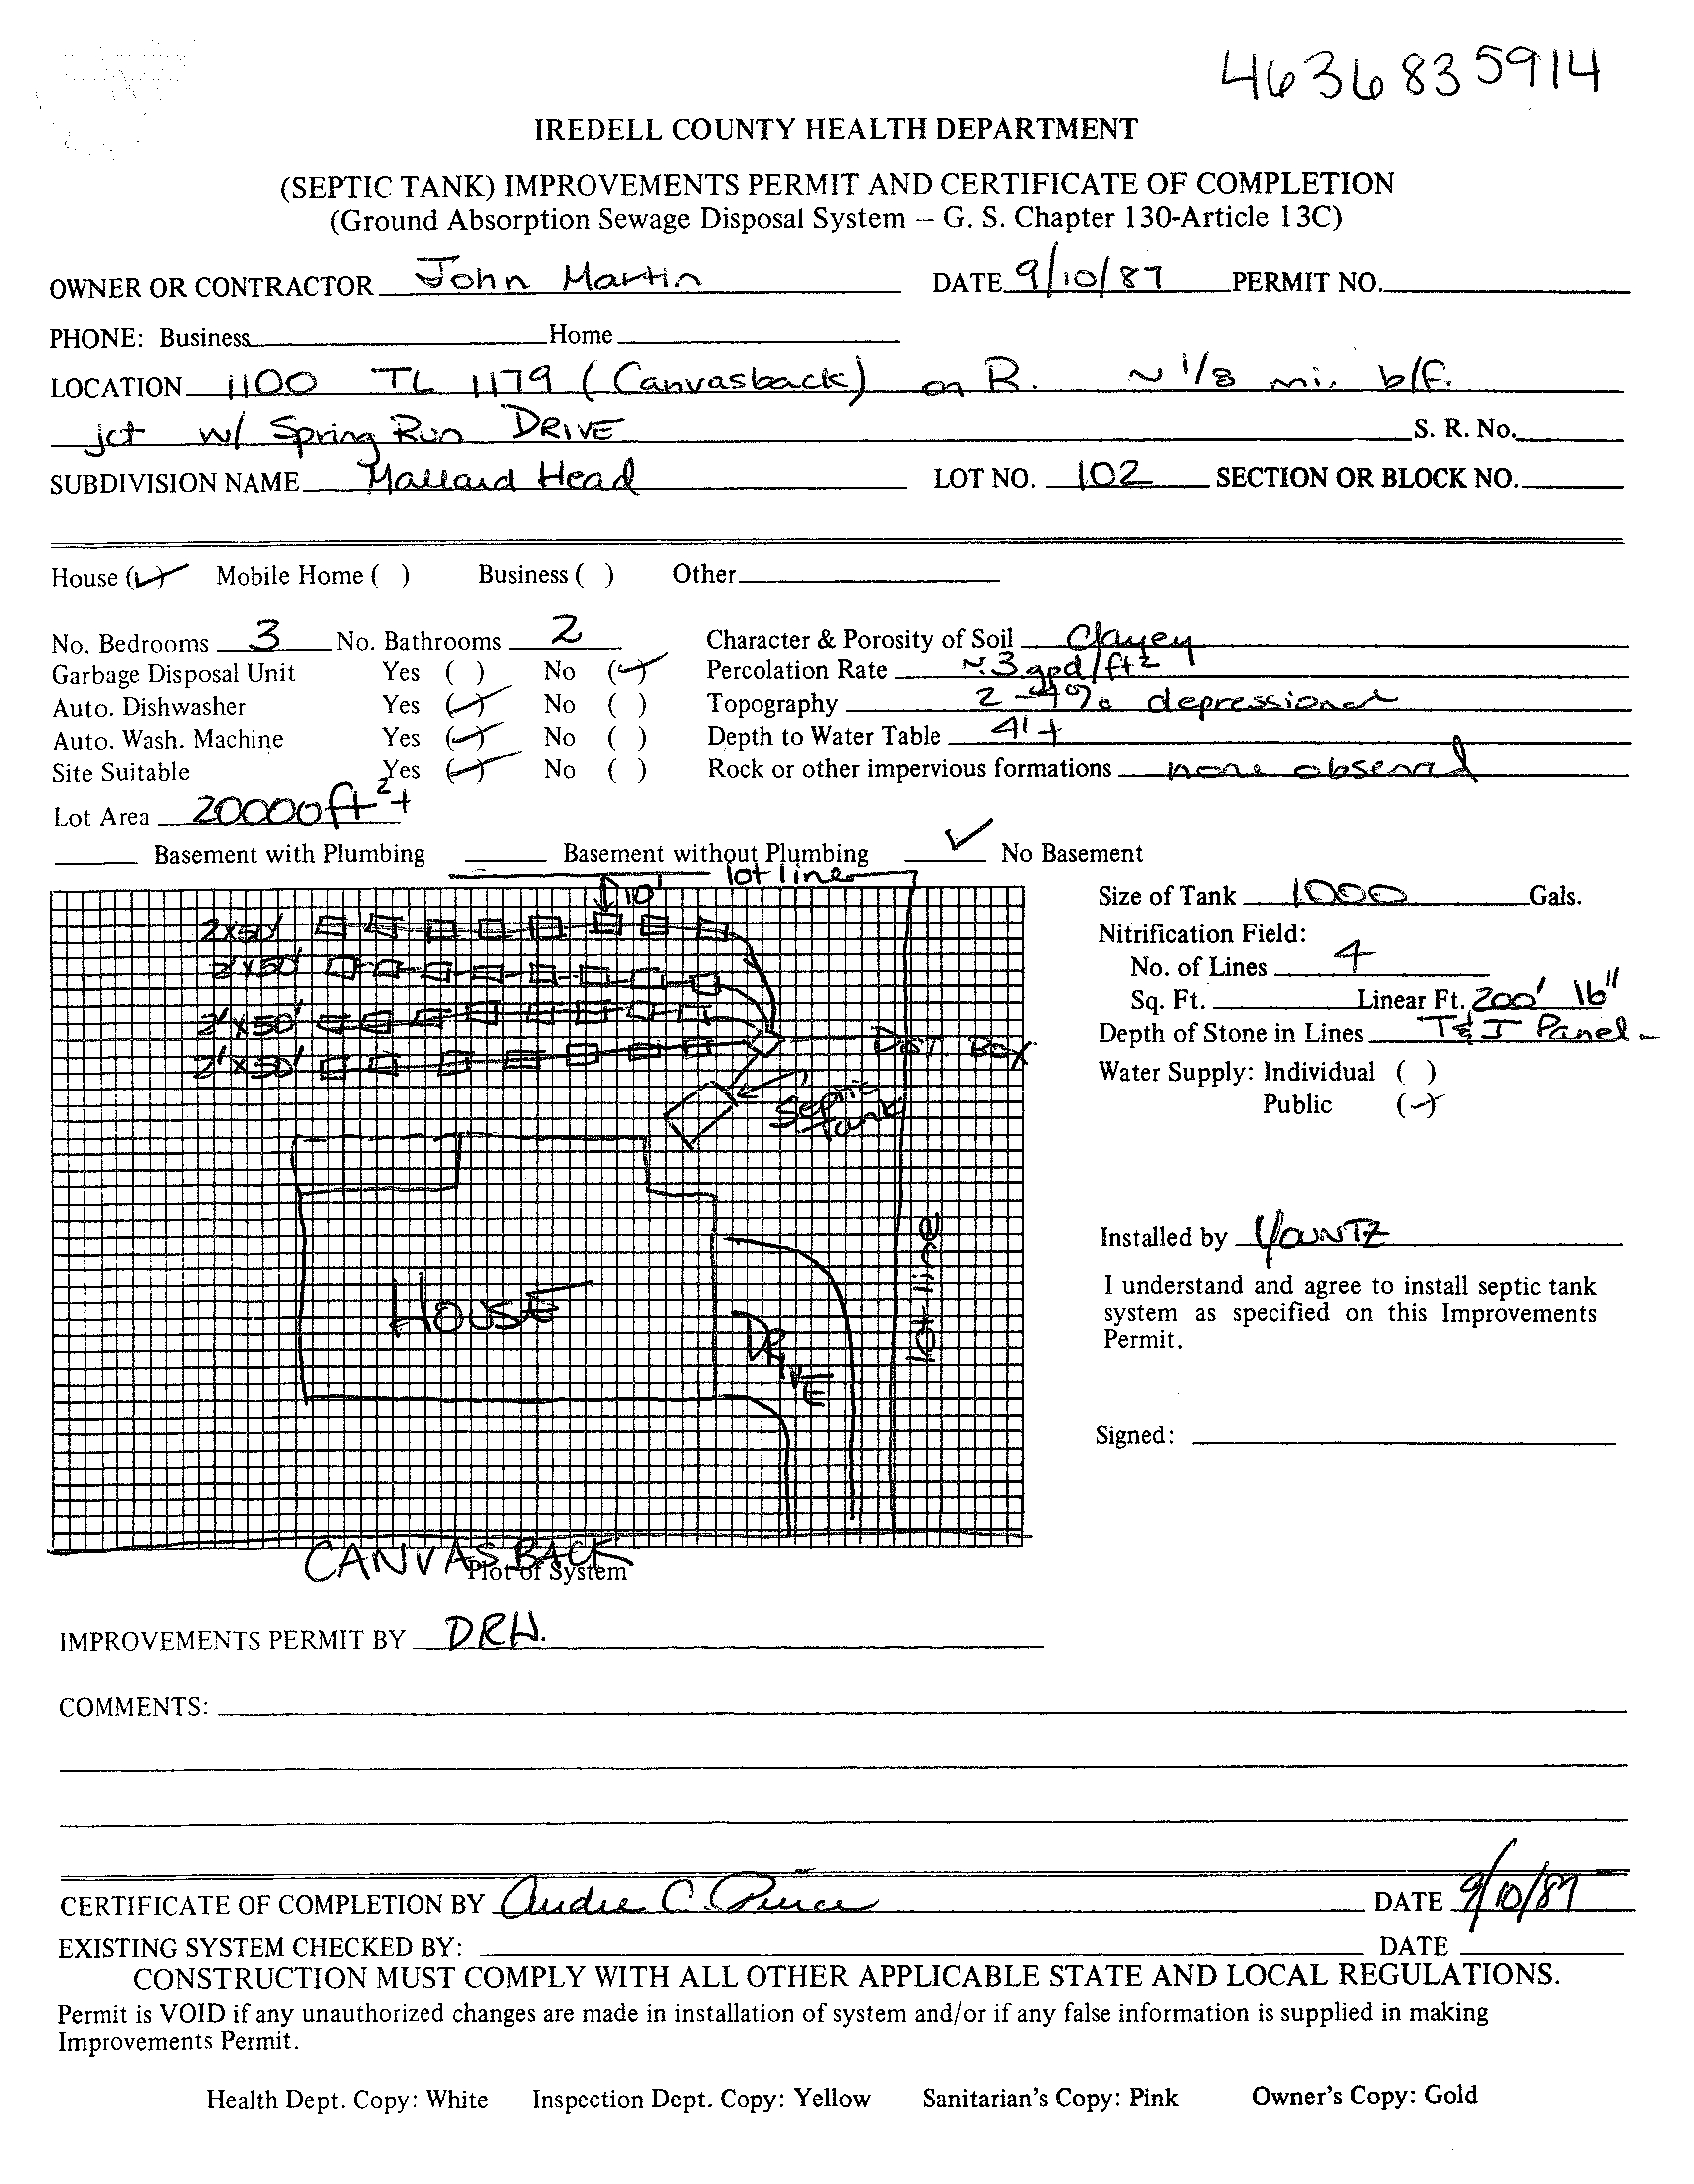 4636835914
IREDELL COUNTY HEALTH DEPARTMENT
(SEPTIC TANK) IMPROVEMENTS PERMIT AND CERTIFICATE OF COMPLETION
(Ground Absorption Sewage Disposal System — G. S. Chapter 130-Article 13C)
OWNER OR CONTRACTOR John Martin DATE 9/10/87 PERMIT NO.
PHONE: Business Home
LOCATION 1100 TL 1179 (Canvasback) on R. ~ 1/8 mi. b/f.
jct w/ Spring Run DRIVE S. R. No.
SUBDIVISION NAME Mallard Head LOT NO. 102 SECTION OR BLOCK NO.
House (✓) Mobile Home ( ) Business ( ) Other
No. Bedrooms 3 No. Bathrooms 2 Character & Porosity of Soil Clayey
Garbage Disposal Unit Yes ( ) No (✓) Percolation Rate ~.3 gpd/ft2
Auto. Dishwasher Yes (✓) No ( ) Topography 2-4% depressional
Auto. Wash. Machine Yes (✓) No ( ) Depth to Water Table 4'+
Site Suitable Yes (✓) No ( ) Rock or other impervious formations none observed
Lot Area 20000ft2+
Basement with Plumbing Basement without Plumbing ✓ No Basement
lot line
10'
2x50'
2'x50'
2'x50'
2'x50'
Dist. Box
Septic
tank
HOUSE
DRIVE
lot line
CANVASBACK
Plot of System
Size of Tank 1000 Gals.
Nitrification Field:
No. of Lines 4
Sq. Ft. Linear Ft. 200' 16"
Depth of Stone in Lines T & J Panel
Water Supply: Individual ( )
Public (✓)
Installed by YOUNTZ
I understand and agree to install septic tank
system as specified on this Improvements
Permit.
Signed:
IMPROVEMENTS PERMIT BY DRH.
COMMENTS:
CERTIFICATE OF COMPLETION BY Andre C. Pierce DATE 9/10/87
EXISTING SYSTEM CHECKED BY: DATE
CONSTRUCTION MUST COMPLY WITH ALL OTHER APPLICABLE STATE AND LOCAL REGULATIONS.
Permit is VOID if any unauthorized changes are made in installation of system and/or if any false information is supplied in making
Improvements Permit.
Health Dept. Copy: White Inspection Dept. Copy: Yellow Sanitarian's Copy: Pink Owner's Copy: Gold